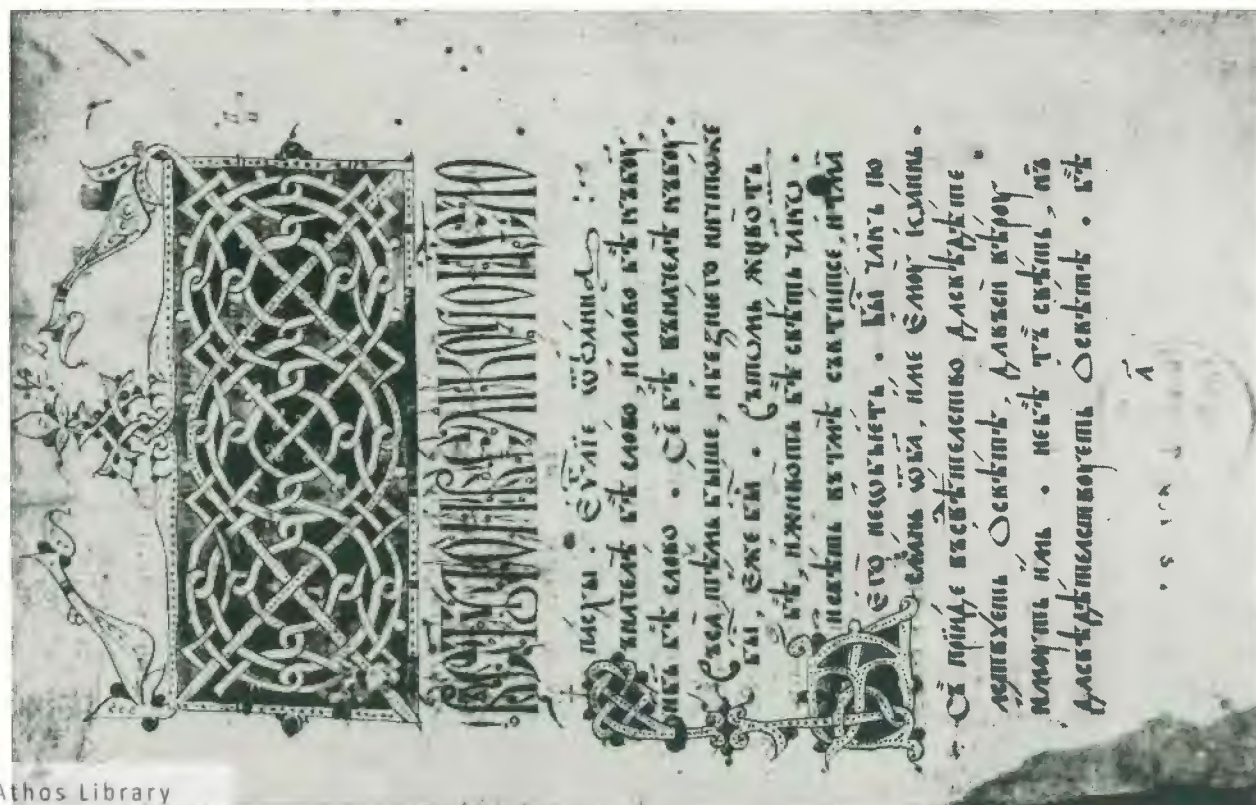 пасхы · Еѵ҃лїе ѿ Іѡанна
Въ начелѣ бѣ слово, и слово бѣ къ боу҃ ·
и бъ҃ бѣ слово · Се бѣ въ начелѣ къ боу҃ ·
Въса тѣмь быше, и без него ничтоже
бы, еже бы · Въ томь животь
бѣ, и животь бѣ свѣть члк҃ѡ ·
и свѣть въ тмѣ светитсе, и тма
его не ѡбьеть · Бы҃ члк҃ь по
слань ѿ ба҃, име емоу Іѡаннь ·
Съ прїиде въ свѣдѣтелство да свѣдѣте
лствуеть ѡ свѣтѣ, да въси вѣроу
имоуть имь · не бѣ тъ свѣть, нъ
да свѣдѣтелствоуеть ѡ свѣтѣ · бѣ
Athos Library